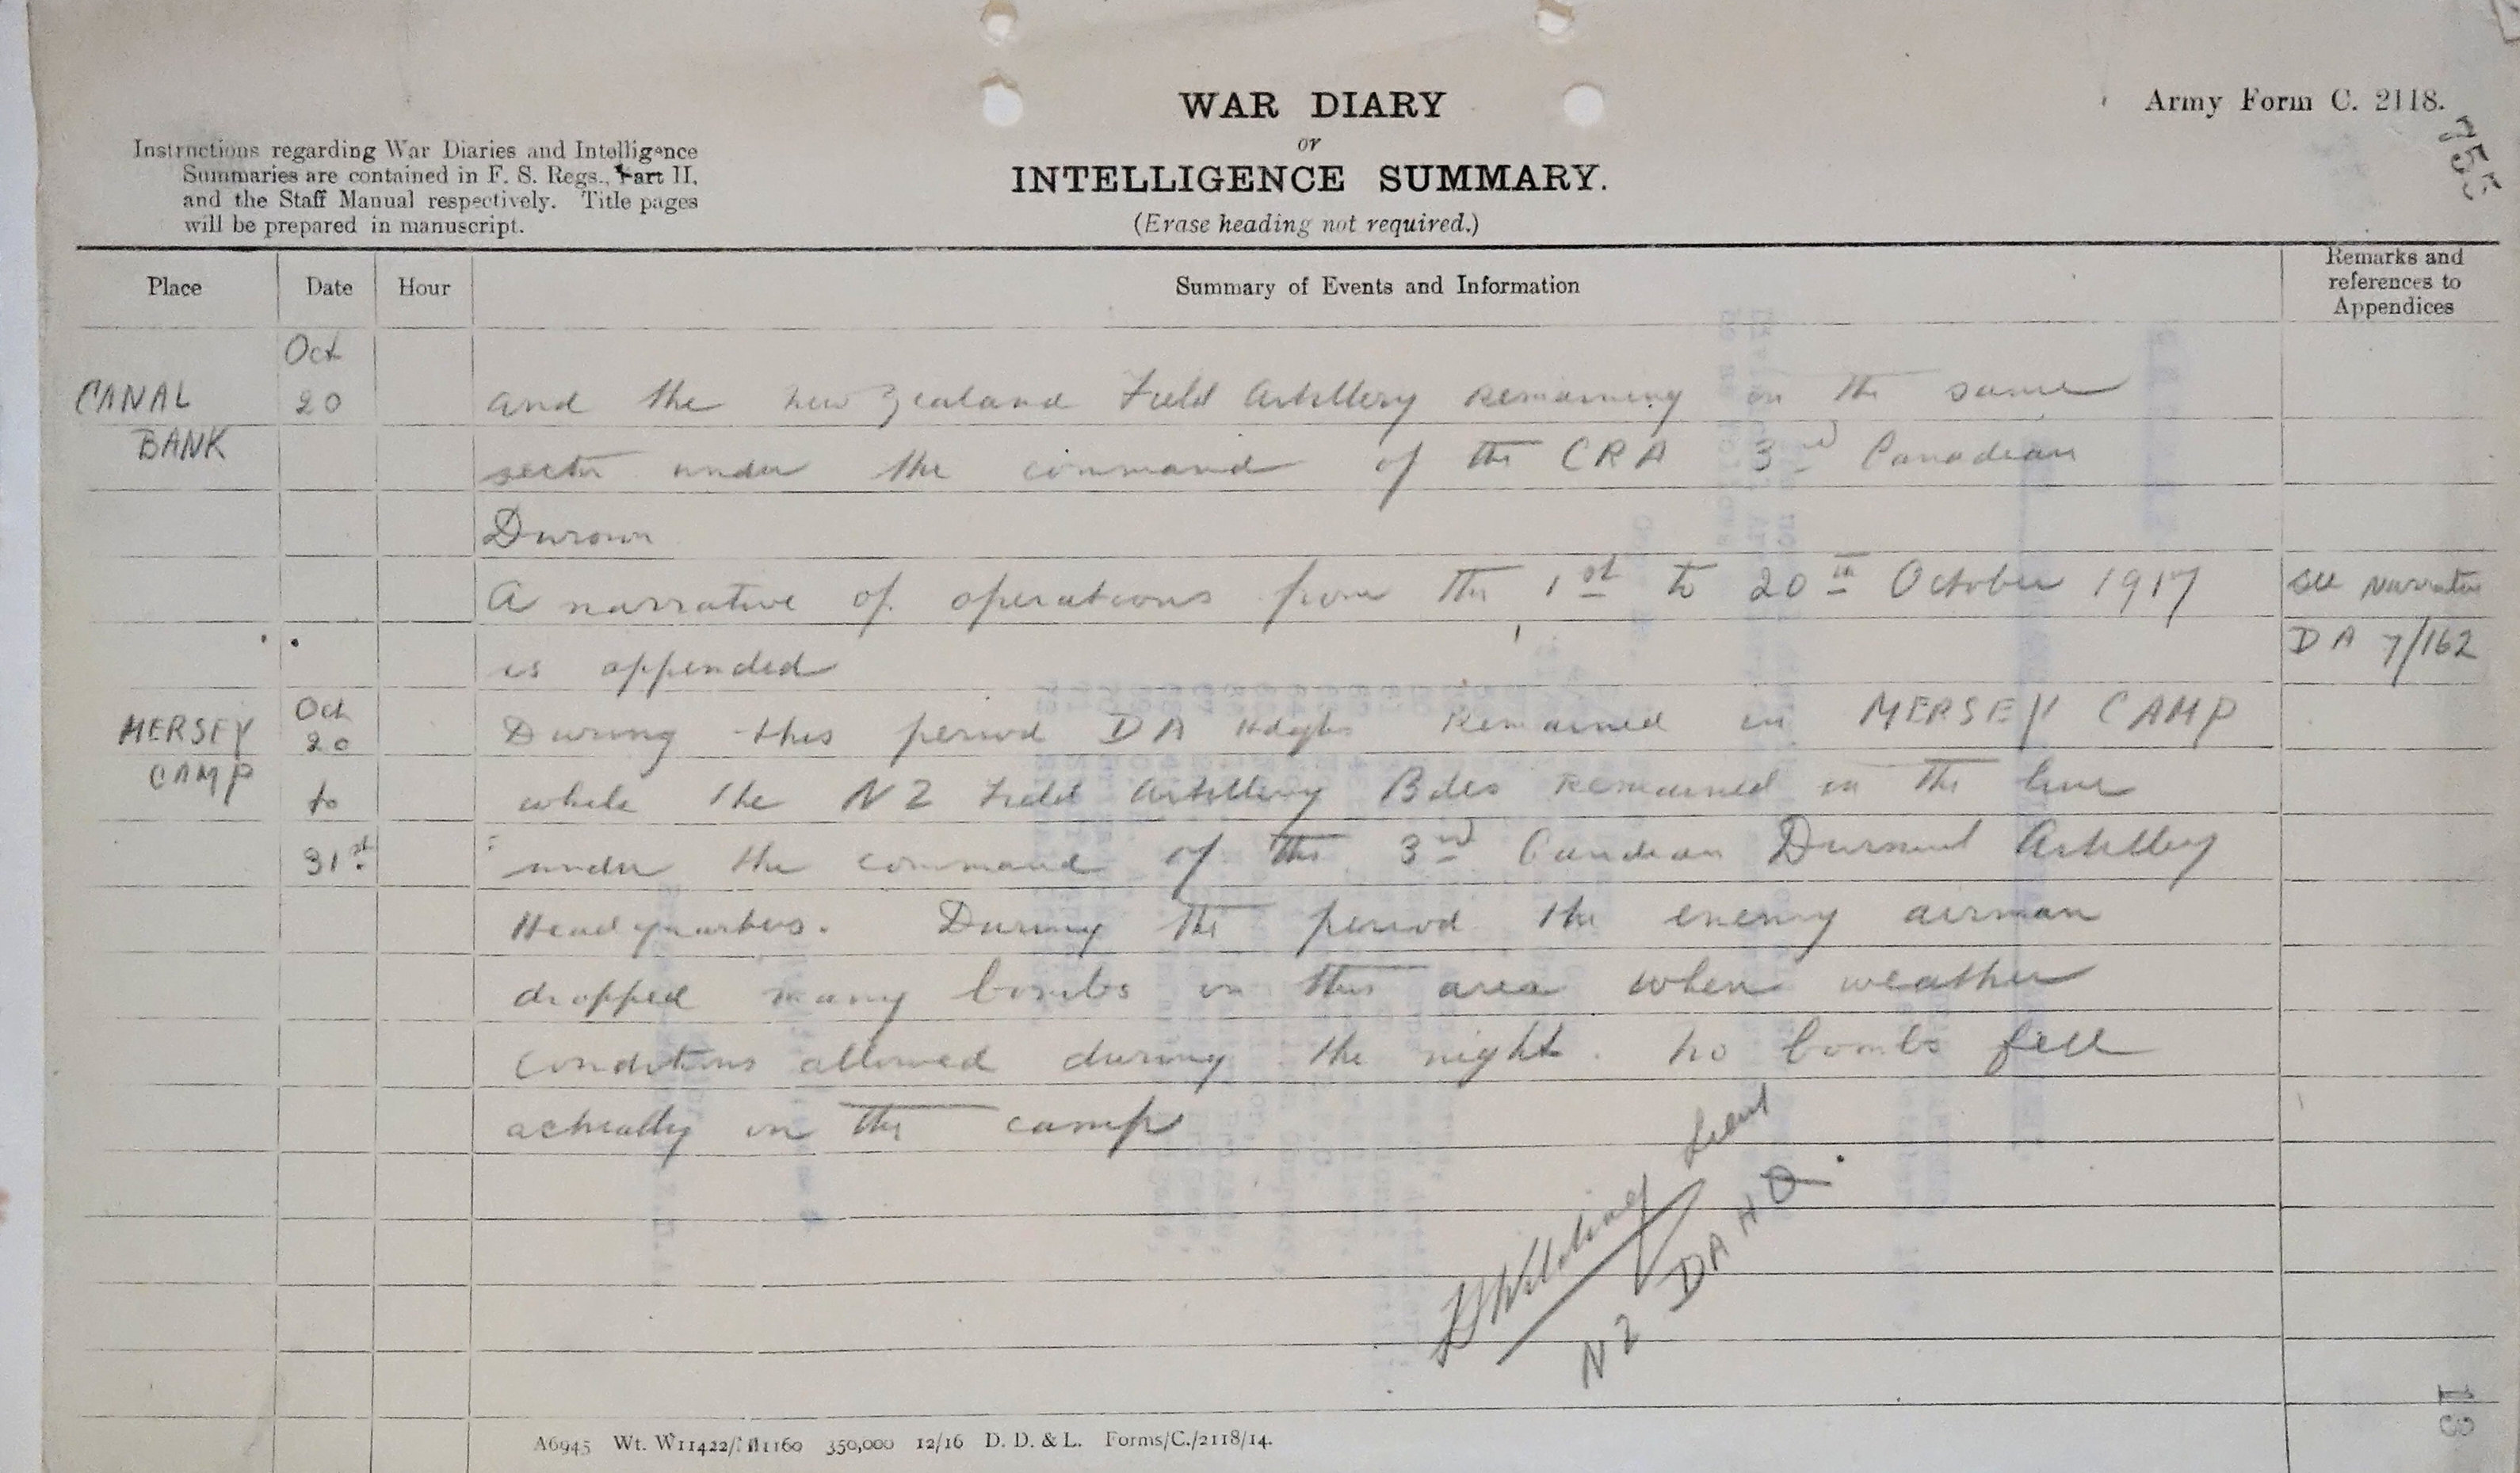 WAR DIARY
or
INTELLIGENCE SUMMARY.
(Erase heading not required.)
Army Form C. 2118.
Instructions regarding War Diaries and Intelligence
Summaries are contained in F. S. Regs., Part II,
and the Staff Manual respectively. Title pages
will be prepared in manuscript.
Place Date Hour Summary of Events and Information Remarks and references to Appendices
Oct
CANAL 20 and the New Zealand Field Artillery remaining in the same
BANK sector under the command of the CRA 3rd Canadian
Division
A narrative of operations from the 1st to 20th October 1917 See Narrative
is appended DA 7/162
MERSEY Oct 20 During this period DA Hdqrs remained in MERSEY CAMP
CAMP to while the NZ Field Artillery Bdes remained in the line
31st under the command of the 3rd Candean Divisional Artillery
Headquarters. During the period the enemy airman
dropped many bombs in this area when weather
conditions allowed during the night. No bombs fell
actually in the camp
Lieut
NZ DAHQ.
A6945 Wt. W11422/M1160 350,000 12/16 D. D. & L. Forms/C./2118/14.